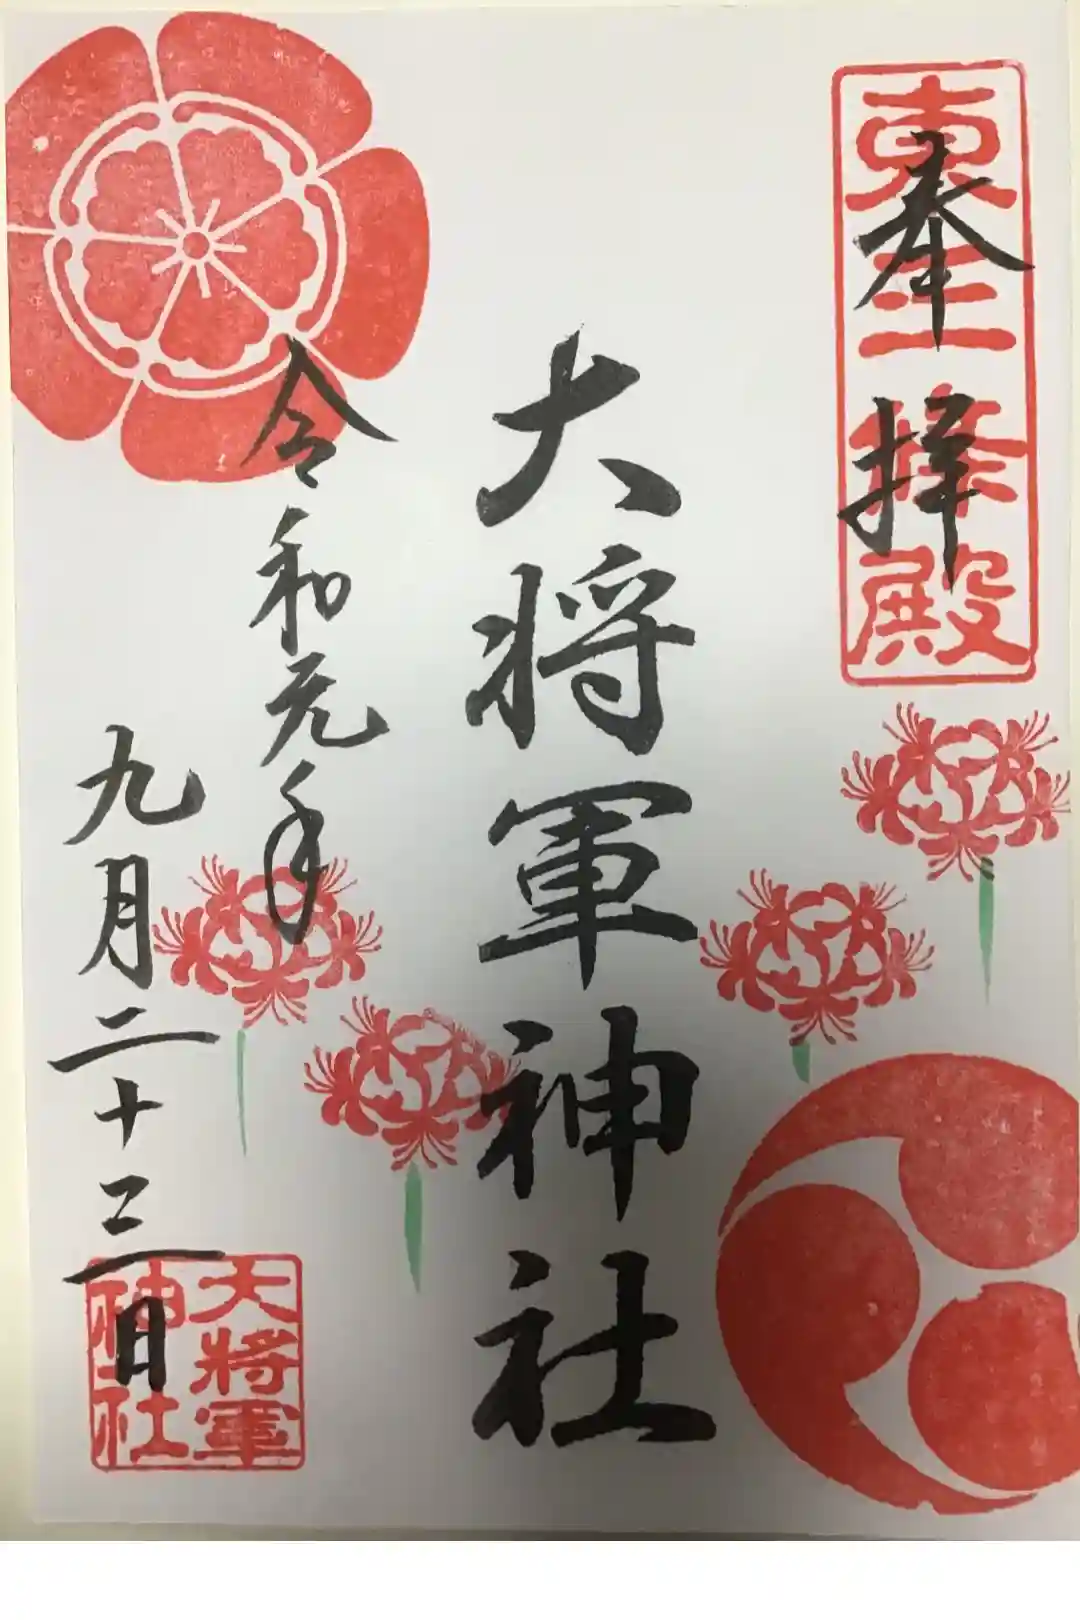 奉拝
東三條殿
大将軍神社
令和元年
九月二十三日
大將軍
神社